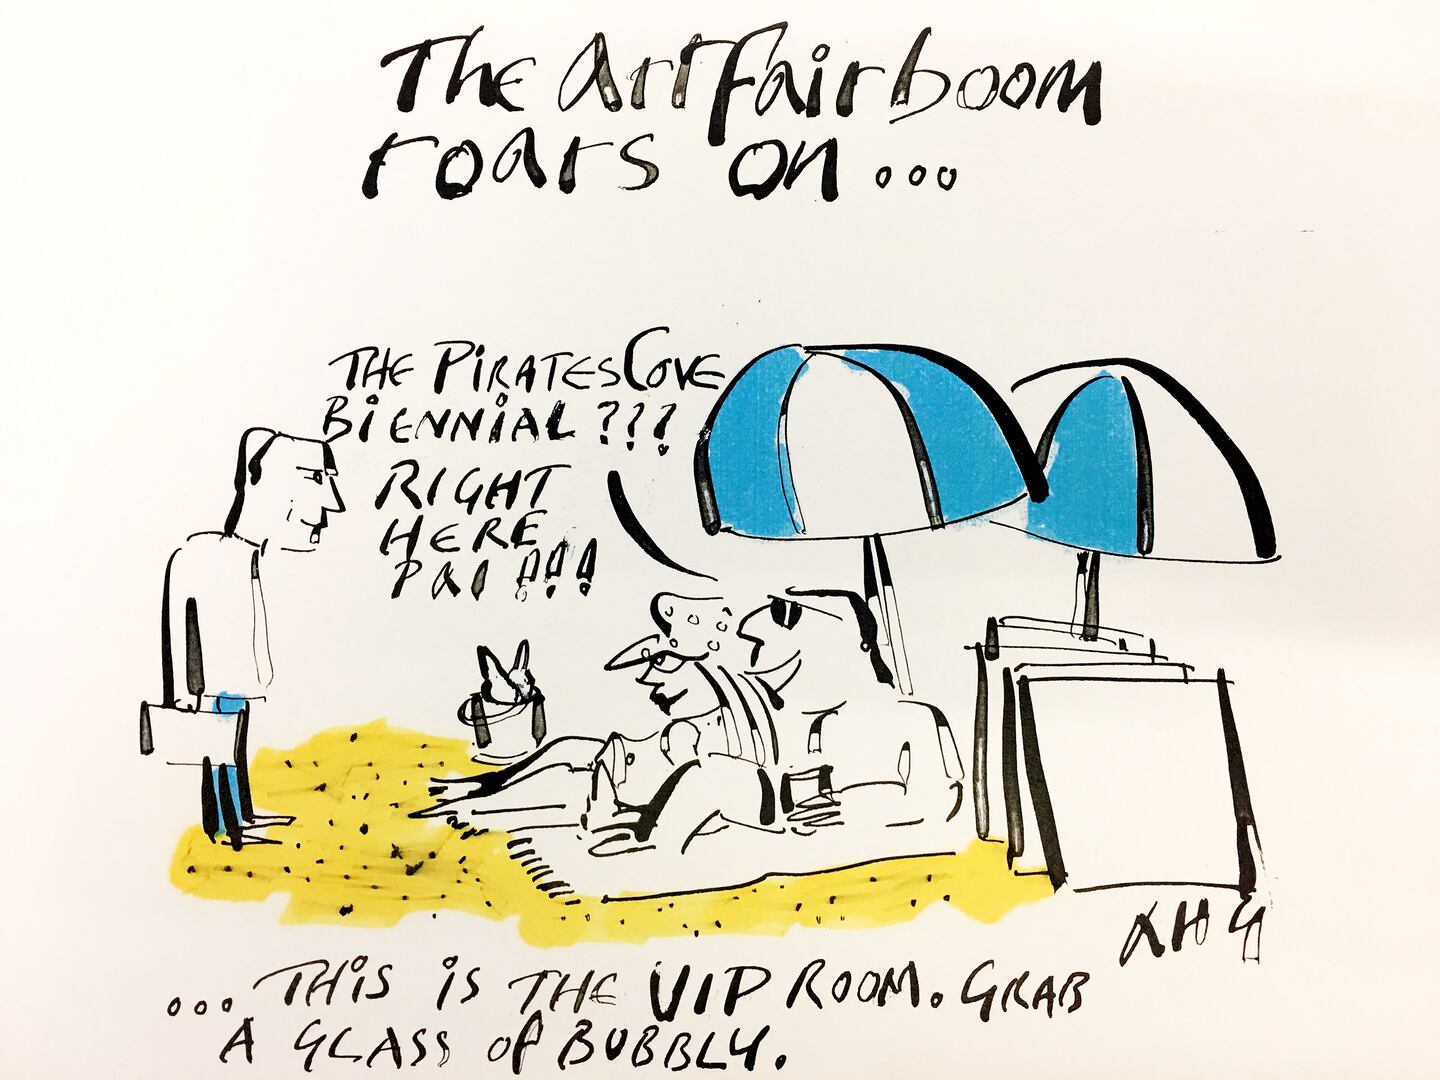 The Art Fair boom
roars on...
THE PIRATES COVE
BIENNIAL ???
RIGHT
HERE
PAL !!!
AHG
...THIS IS THE VIP ROOM. GRAB
A GLASS OF BUBBLY.